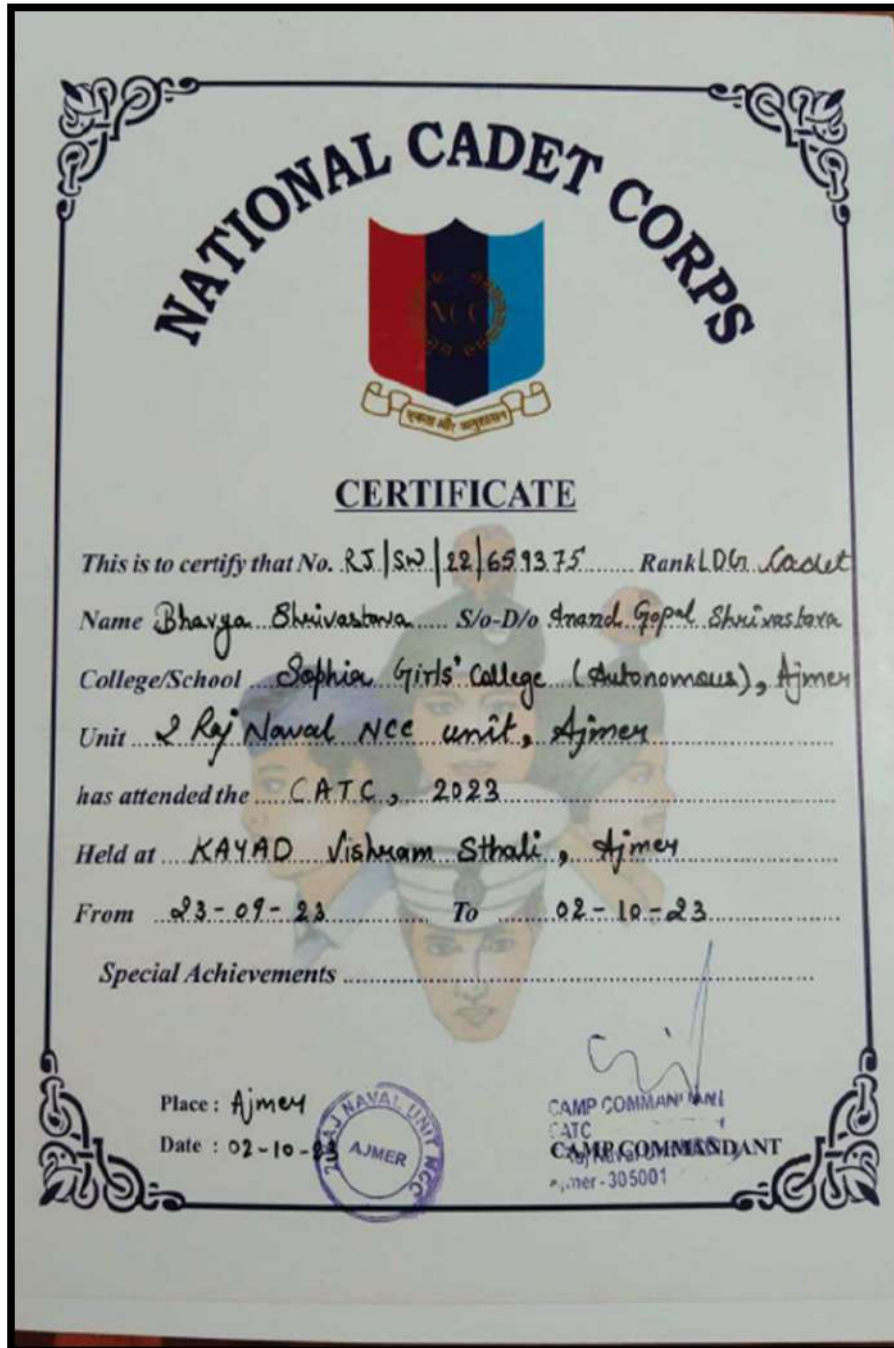 NATIONAL CADET CORPS
NCC
एकता और अनुशासन
CERTIFICATE
This is to certify that No. RJ|SW|22|659375 Rank LDG Cadet
Name Bhavya Shrivastava S/o-D/o Anand Gopal Shrivastava
College/School Sophia Girls' College (Autonomous), Ajmer
Unit 2 Raj Naval NCC unit, Ajmer
has attended the C.A.T.C, 2023
Held at KAYAD Vishram Sthali, Ajmer
From 23-09-23 To 02-10-23
Special Achievements
Place : Ajmer
Date : 02-10-23
2 RAJ NAVAL UNIT NCC
AJMER
CAMP COMMANDANT
CATC
CAMP COMMANDANT
Ajmer - 305001